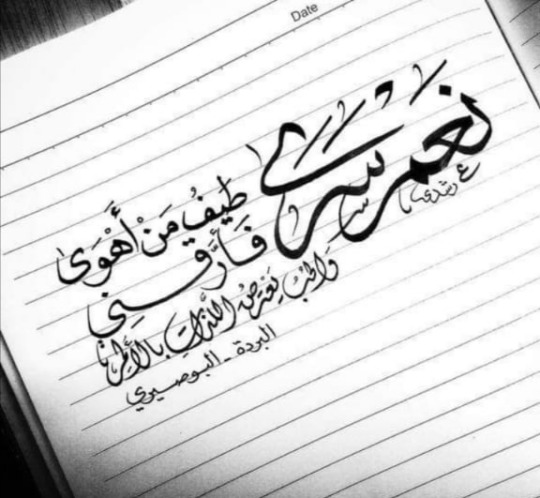 Date
نعم سرى
طَيْفُ مَنْ أَهْوَى
فَأَرَّقَنِي
وَالحُبُّ يَعْتَرِضُ اللَّذَّاتِ بِالأَلَمِ
البردة - البوصيري